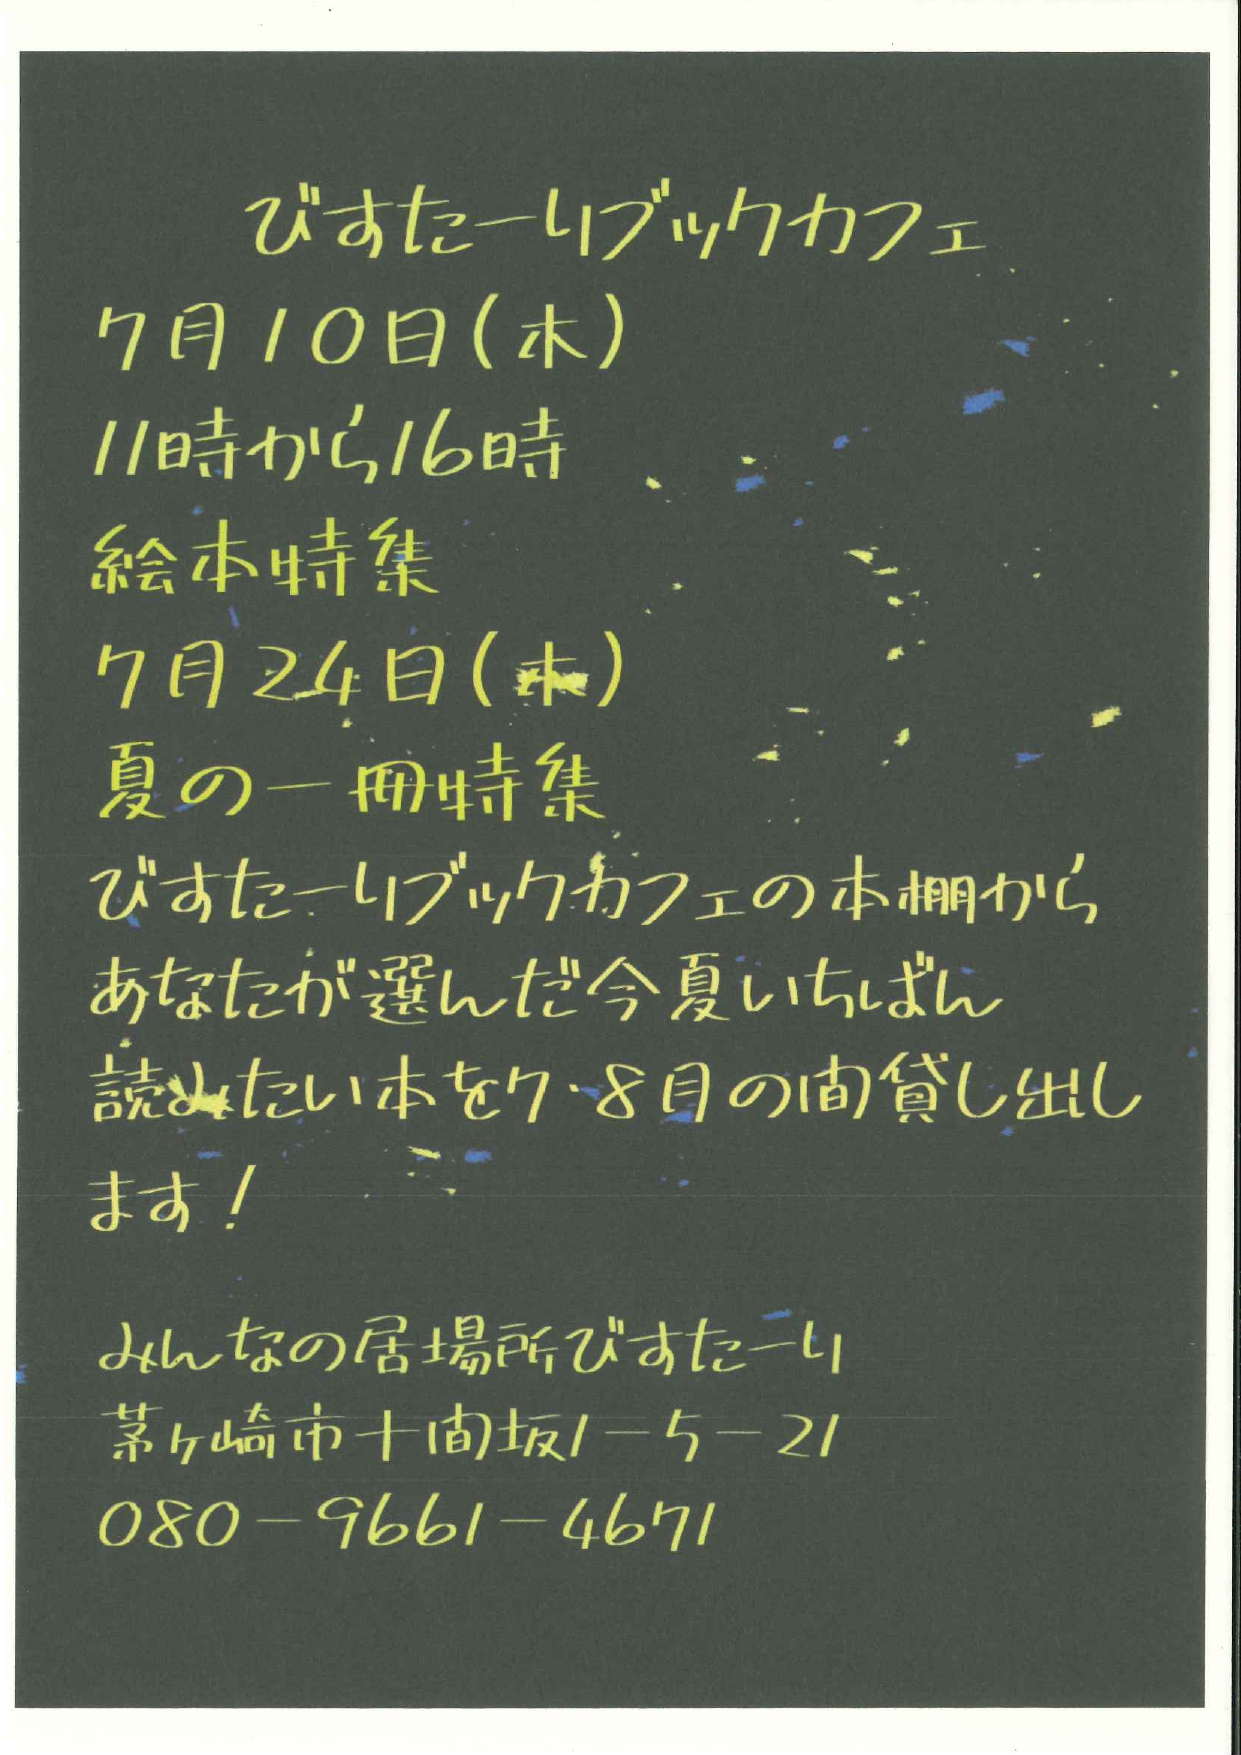 びすたーりブックカフェ
7月10日(木)
11時から16時
絵本特集
7月24日(木)
夏の一冊特集
びすたーりブックカフェの本棚から
あなたが選んだ今夏いちばん
読みたい本を7・8月の間貸し出し
ます!
みんなの居場所びすたーり
茅ヶ崎市十間坂1-5-21
080-9661-4671